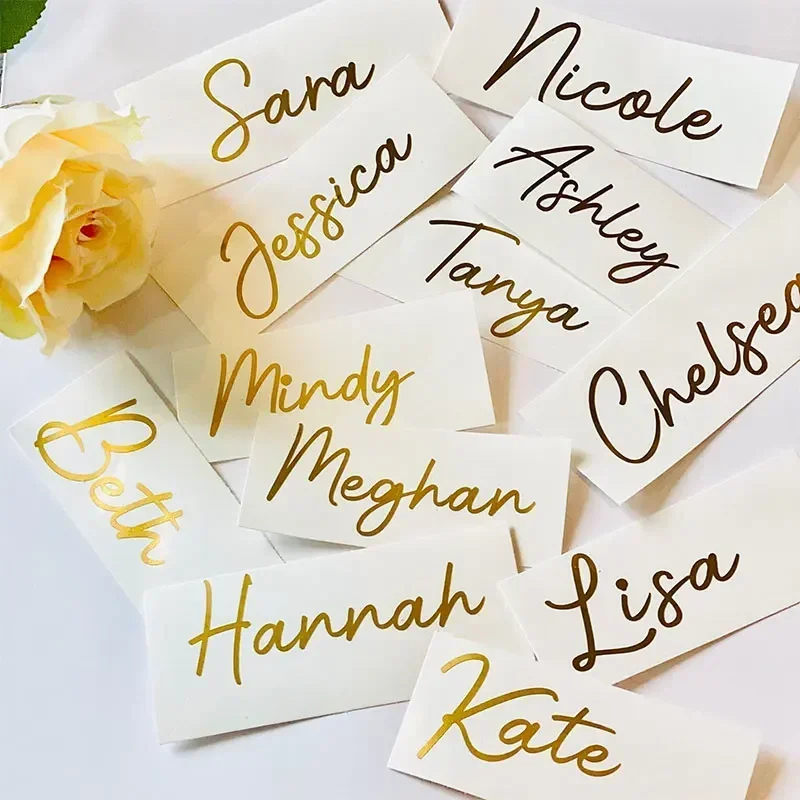 Sara
Nicole
Jessica
Ashley
Tanya
Chelsea
Mindy
Beth
Meghan
Hannah
Lisa
Kate